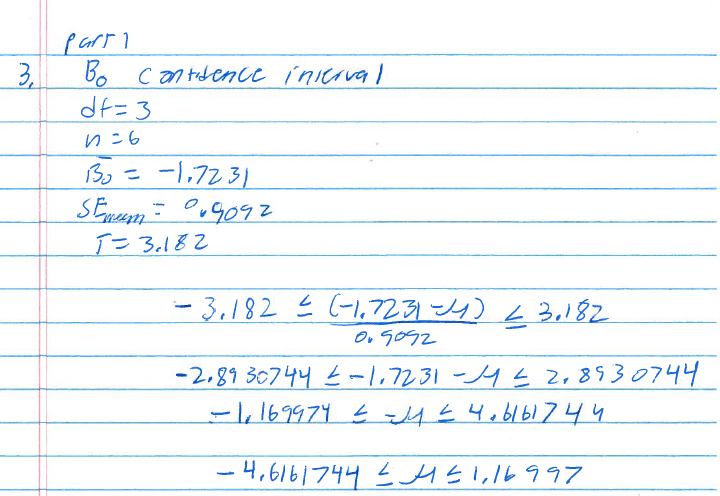 Part 1
3. B₀ confidence interval
df = 3
n = 6
B̅₀ = -1.7231
SEmean = 0.9092
T = 3.182
-3.182 ≤ (-1.7231 - μ) / 0.9092 ≤ 3.182
-2.8930744 ≤ -1.7231 - μ ≤ 2.8930744
-1.169974 ≤ -μ ≤ 4.6161744
-4.6161744 ≤ μ ≤ 1.16997